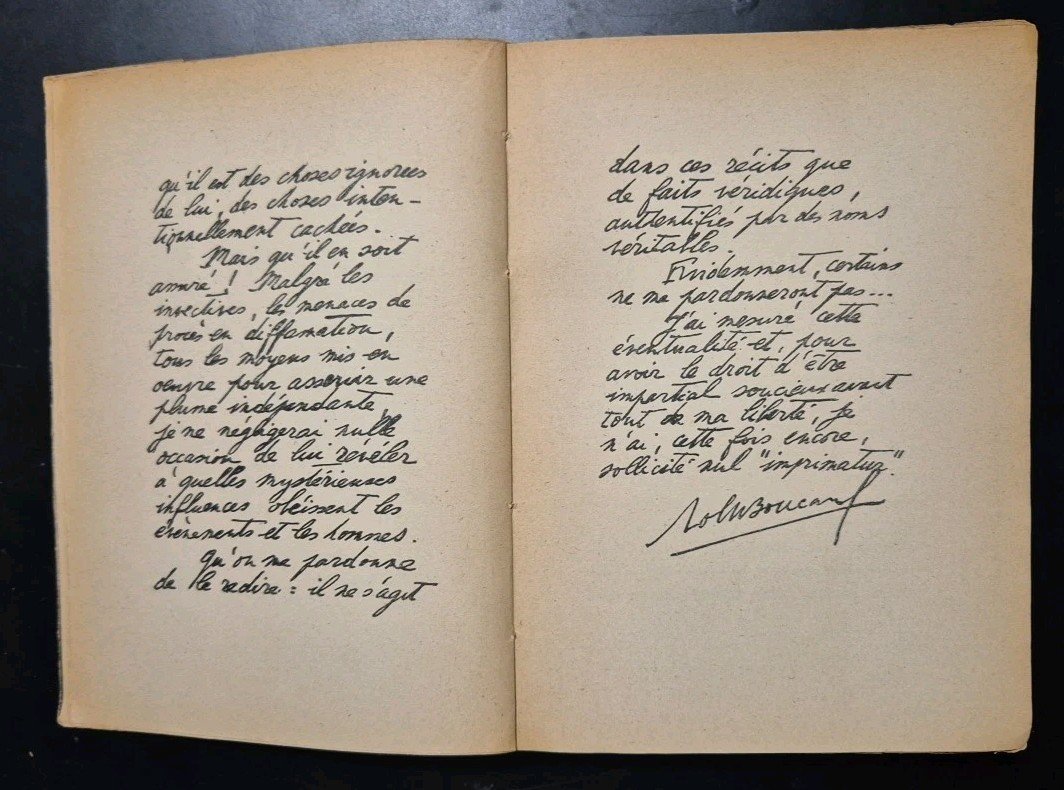 qu'il est des choses ignorées
de lui, des choses inten-
tionnellement cachées.
Mais qu'il en soit
assuré ! Malgré les
invectives, les menaces de
procès en diffamation,
tous les moyens mis en
œuvre pour asservir une
plume indépendante,
je ne négligerai nulle
occasion de lui révéler
à quelles mystérieuses
influences obéissent les
évènements et les hommes.
Qu'on me pardonne
de le redire : il ne s'agit
dans ces récits que
de faits véridiques,
authentifiés par des noms
véritables.
Evidemment, certains
ne me pardonneront pas...
J'ai mesuré cette
éventualité et, pour
avoir le droit d'être
impartial soucieux avant
tout de ma liberté, je
n'ai, cette fois encore,
sollicité nul "imprimatur".